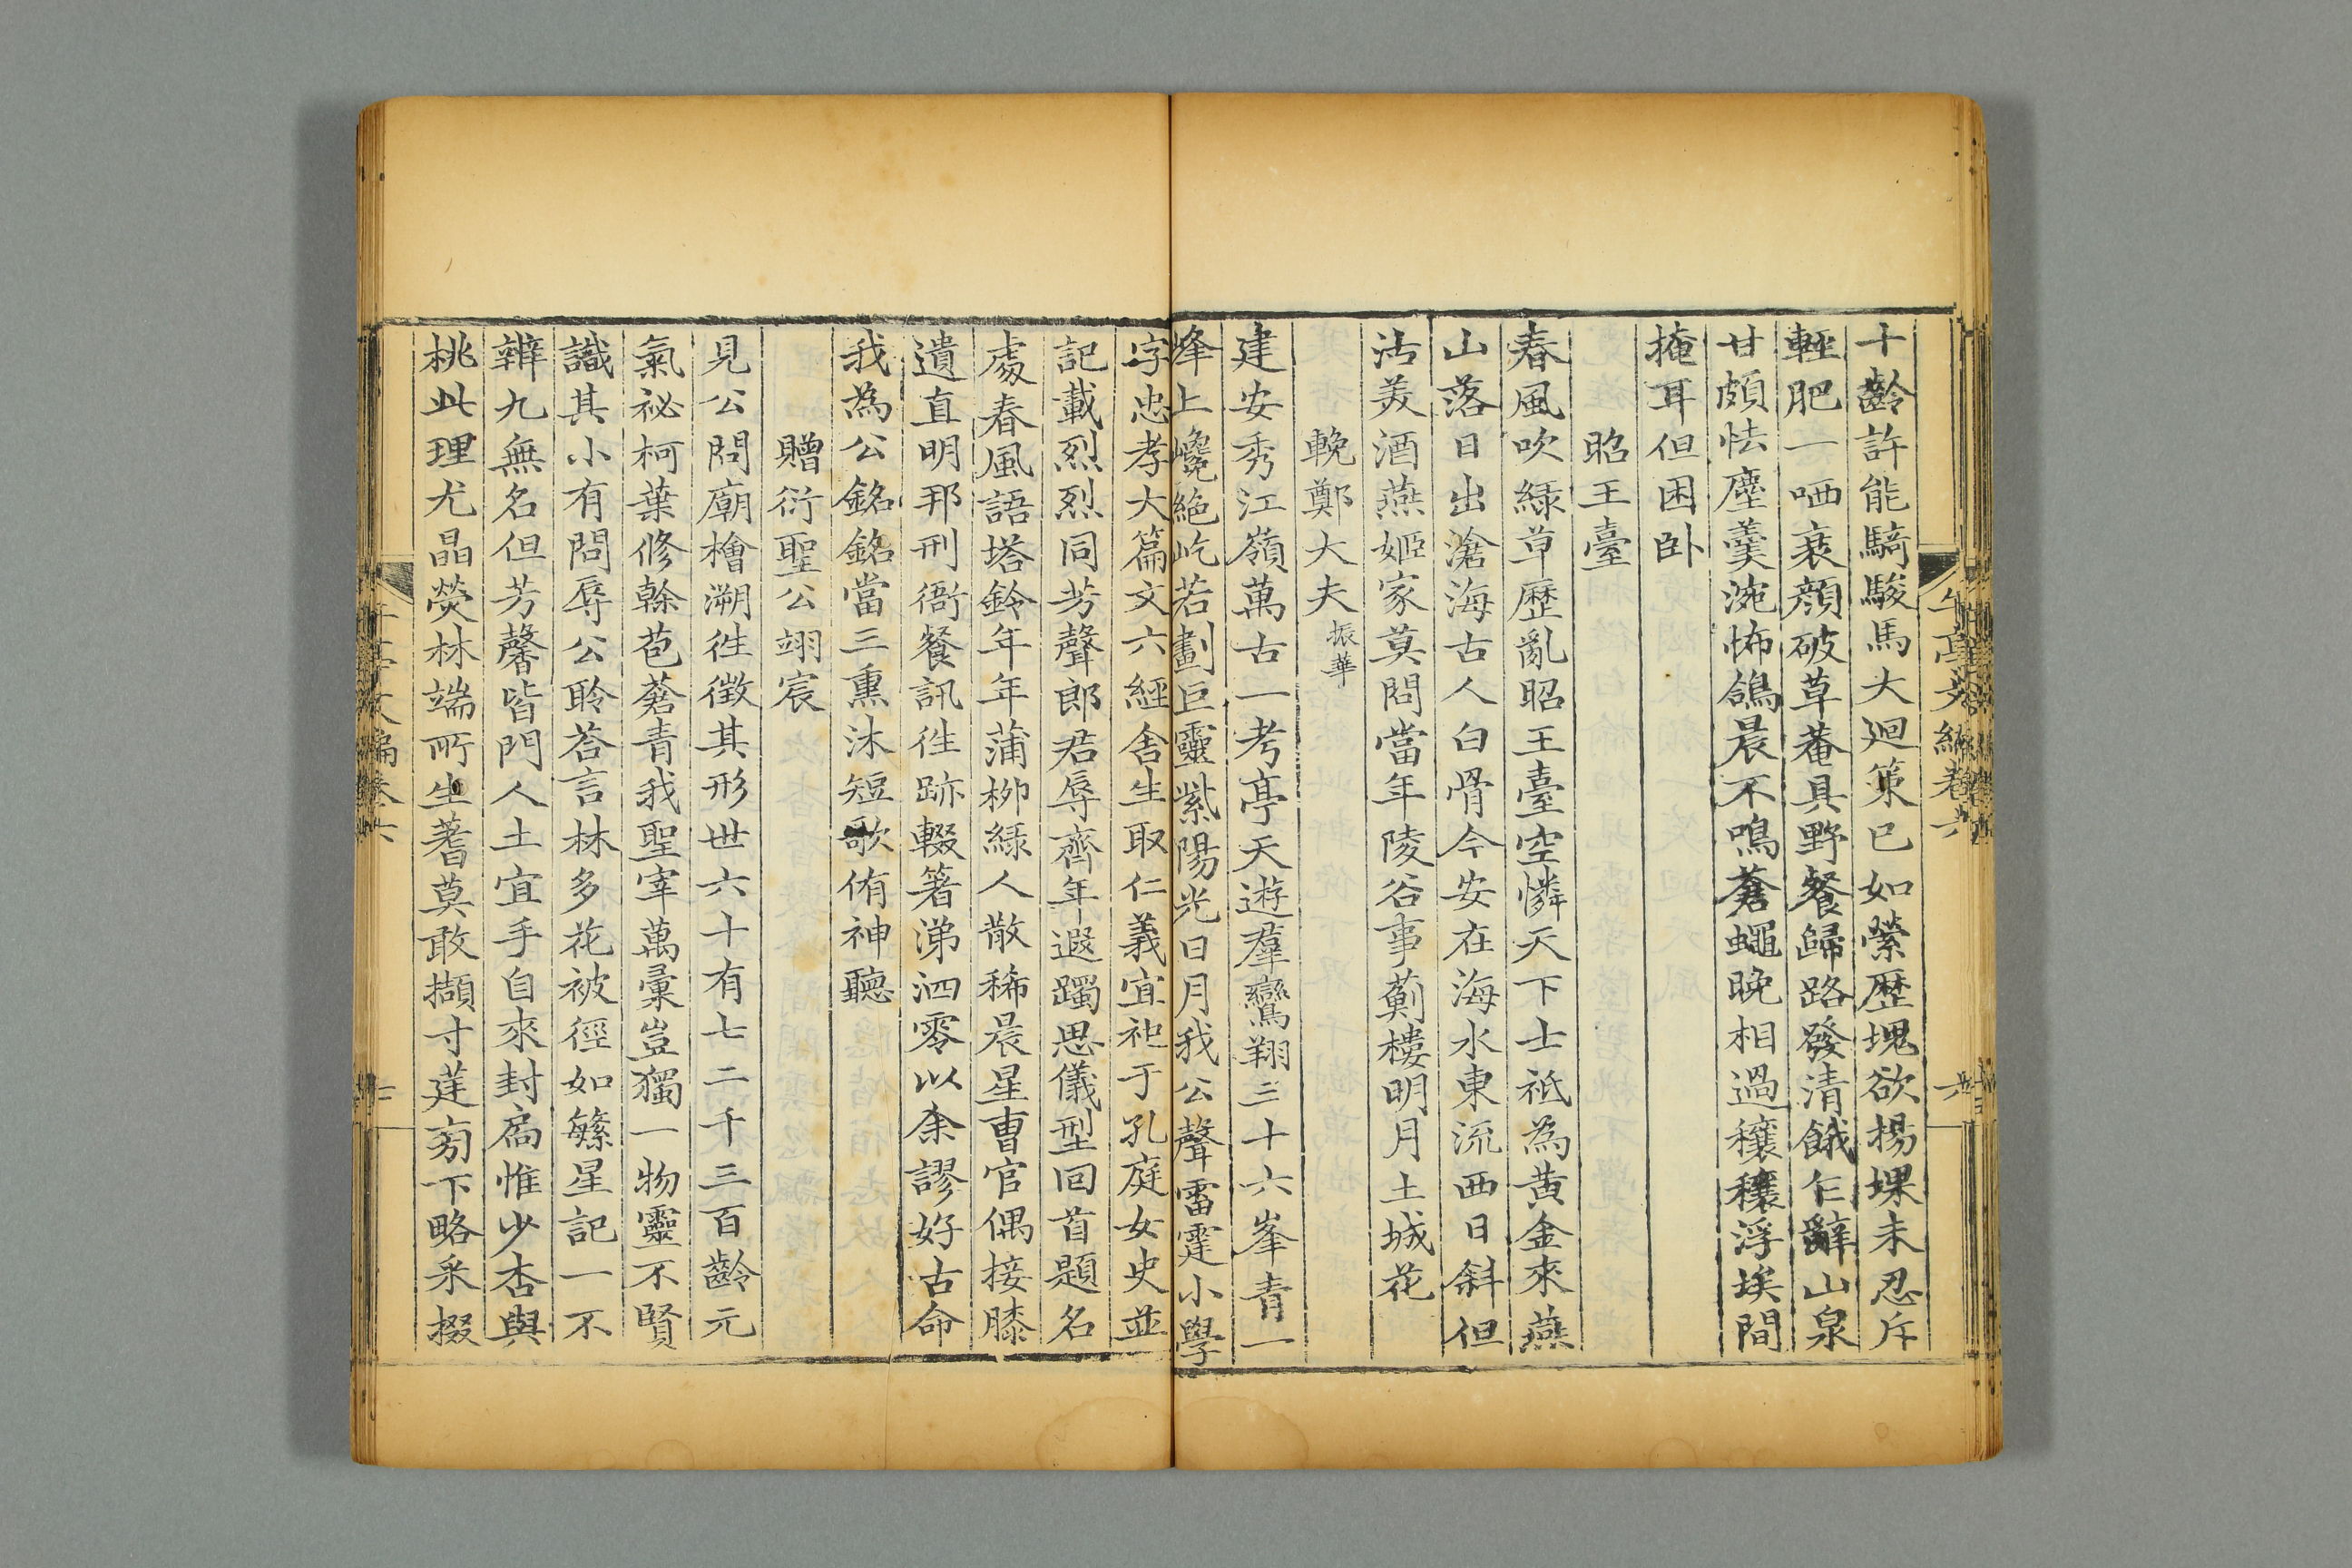 午亭文編卷六
十齡許能騎駿馬大迴策已如縈歷塊欲揚堁未忍斥
輕肥一哂衰顏破草菴具野餐歸路發清餓乍辭山泉
甘頗怯塵羹涴怖鴿晨不鳴蒼蠅晚相過穰穰浮埃間
掩耳但困卧
昭王臺
春風吹綠草歷亂昭王臺空憐天下士祗為黃金來燕
山落日出滄海古人白骨今安在海水東流西日斜但
沽美酒燕姬家莫問當年陵谷事薊樓明月土城花
輓鄭大夫振華
建安秀江嶺萬古一考亭天遊羣鸞翔三十六峯青一
峰上巉絕屹若劃巨靈紫陽光日月我公聲雷霆小學
字忠孝大篇文六經舍生取仁義宜祀于孔庭女史並
記載烈烈同芳聲郎君辱齊年遐躅思儀型回首題名
處春風語塔鈴年年蒲柳綠人散稀晨星曹官偶接膝
遺直明邦刑衙餐訊徃跡輟箸涕泗零以余謬好古命
我為公銘銘當三熏沐短歌侑神聽
贈衍聖公翊宸
見公問廟檜溯徃徵其形世六十有七二千三百齡元
氣祕柯葉修榦苞蒼青我聖宰萬彙豈獨一物靈不賢
識其小有問辱公聆荅言林多花被徑如繁星記一不
辨九無名但芳馨皆門人土宜手自來封扃惟少杏與
桃此理尤晶熒林端所生蓍莫敢擷寸莛芻下略采掇
午亭文編卷六